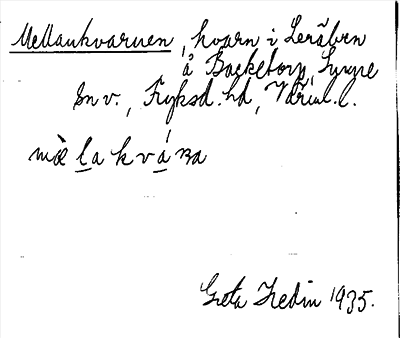 Mellankvarnen, kvarn i Lerälven
å Backetorp, Lysvik
sn v., Fryksd. hd, Värml. l.
mæ̀ l a k v á ɳa
Greta Hedin 1935.